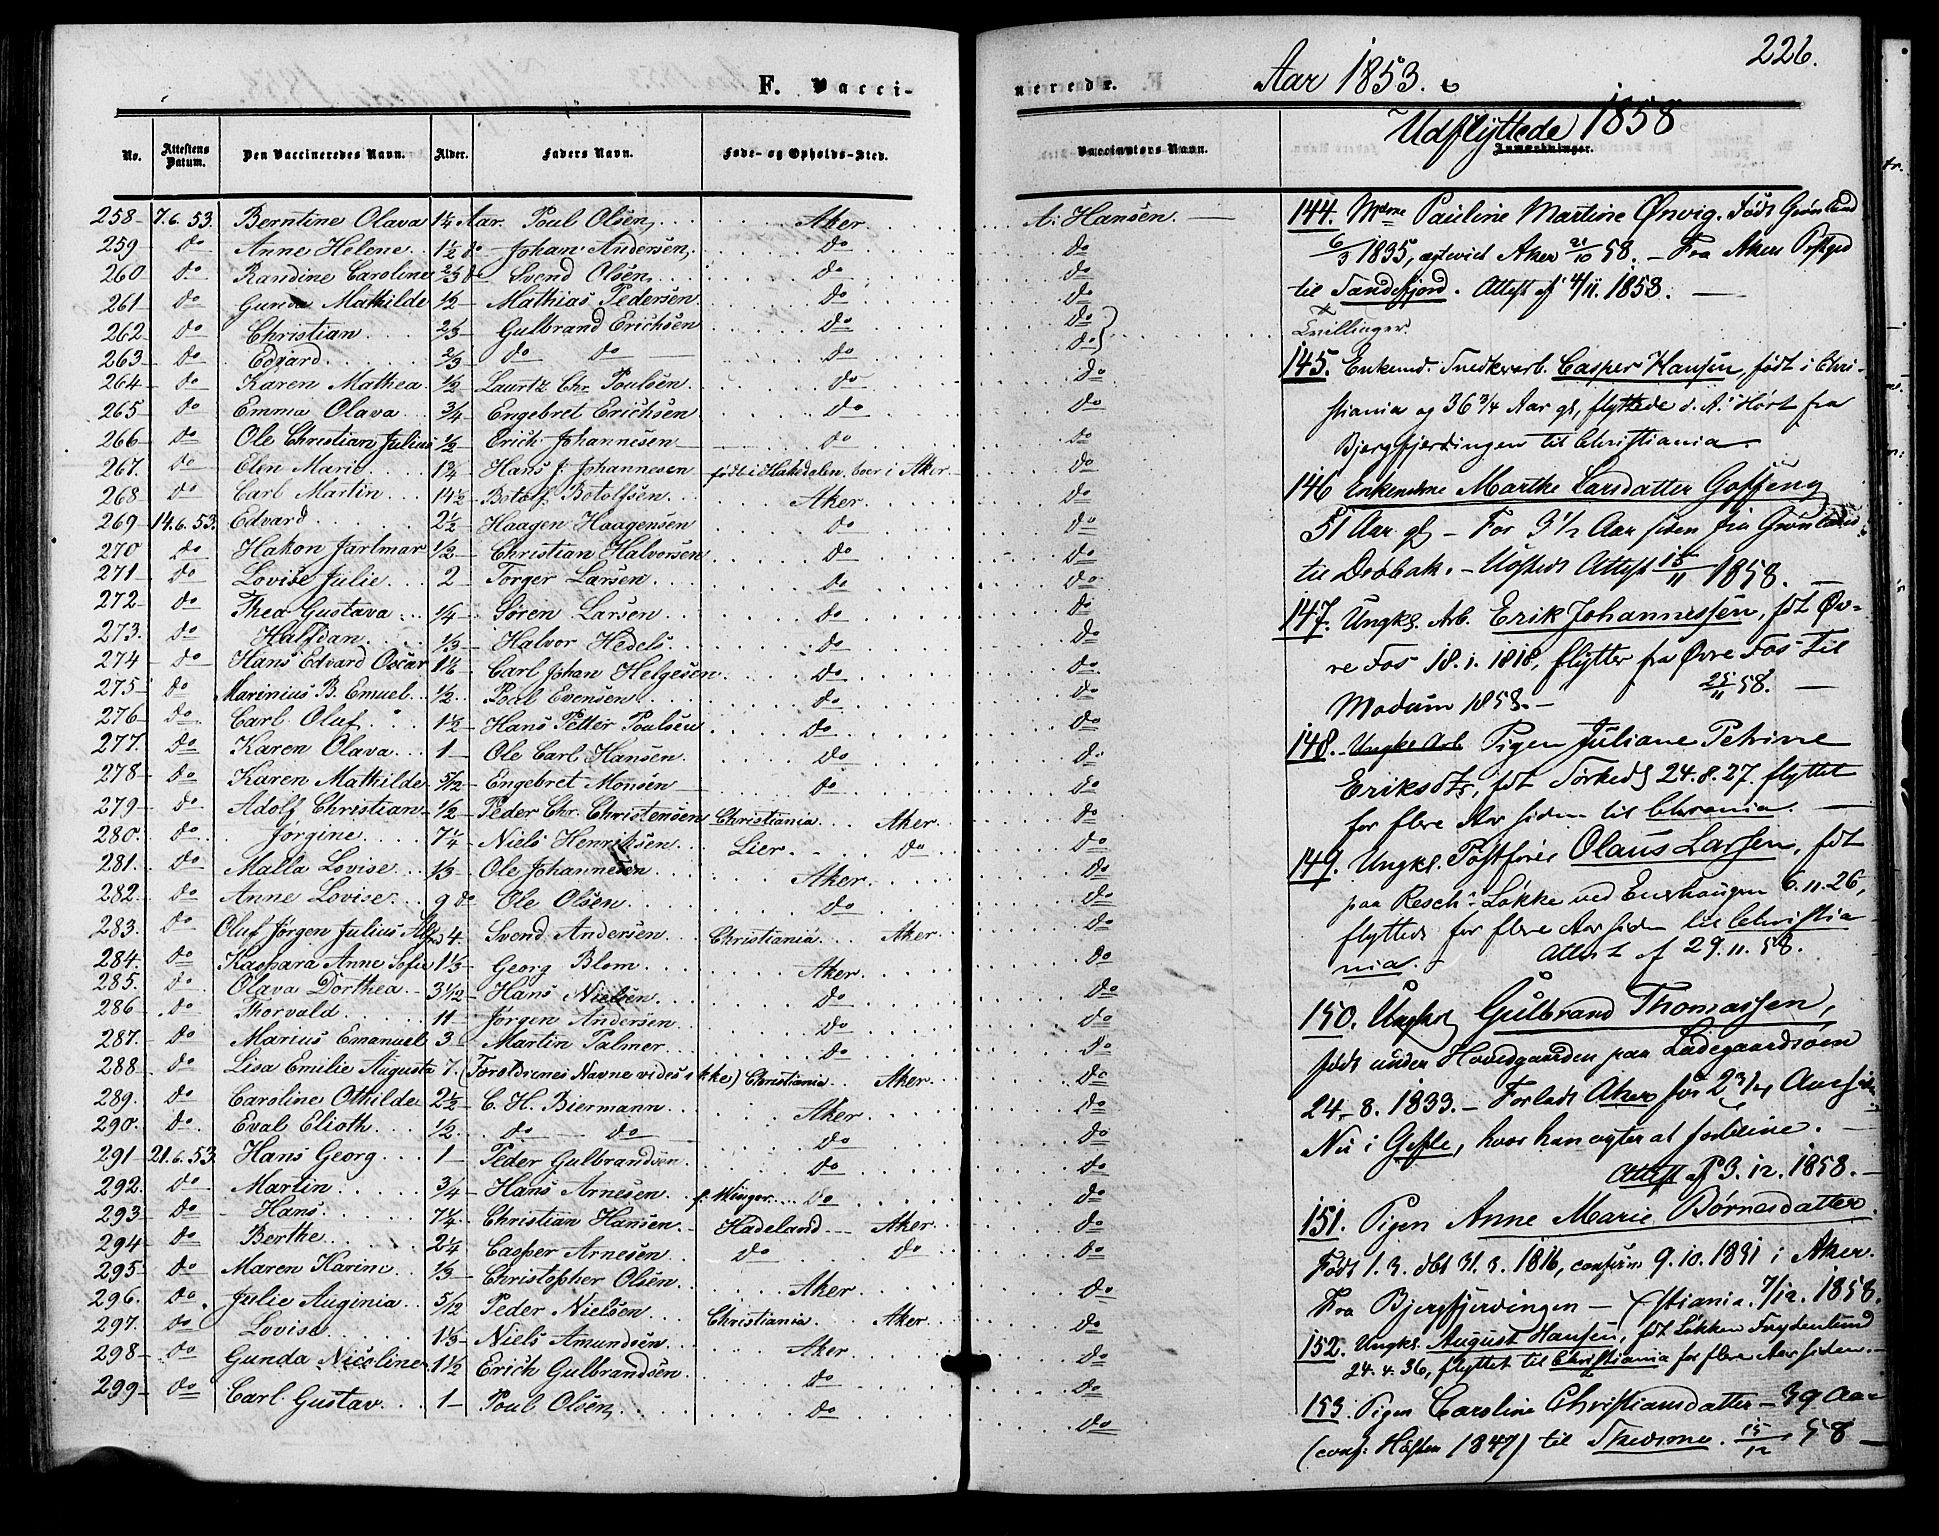 226.
F. Vacci-
nerede.
Aar 1853.
Udflyttede 1858
No. Attestens Datum. Den Vaccineredes Navn. Alder. Faders Navn. Føde- og Opholds-Sted. Vaccinators Navn. Anmærkninger.
258 7.6.53. Berntine Olava 1¼ Aar. Poul Olsen Aker A. Hansen.
259 do Anne Helene 1½ do Johan Andersen do do
260 do Randine Caroline 2/3 do Svend Olsen do do
261 do Gunda Mathilde ½ Mathias Pedersen do do
262 do Christian 2/3 Gulbrand Erichsen do do
263 do Edvard 2/3 do do do do
264 do Karen Mathea ½ Lauritz Chr. Poulsen do do
265 do Emma Olava ¾ Engebret Erichsen do do
266 do Ole Christian Julius ½ Erich Johannesen do do
267. do Elen Marie 1¾ Hans J. Johannesen født i Hakedalen, boer i Aker do
268 do Carl Martin 14½ Botolf Botolfsen Aker do
269 14.6.53. Edvard 2½ Haagen Haagensen do do
270 do Hakon Jarlmar ½ Christian Halvorsen do do
271 do Lovise Julie 2 Torger Larsen do do
272 do Thea Gustava ¼ Sören Larsen do do
273. do Halfdan 1/3 Halvor Hedels do do
274 do Hans Edvard Oscar 1 1/6 Carl Johan Helgesen do do
275 do Marinius B. Emuel ½ Poul Evensen do do
276 do Carl Oluf 1½ Hans Petter Poulsen do do
277. do Karen Olava 1 Ole Carl Hansen do do
278 do Karen Mathilde 5/12 Engebret Monsen do do
279 do Adolf Christian ½ Peder Chr. Christensen Christiania Aker do
280. do Jörgine 7¼ Niels Henriksen Lier do do
281. do Malla Lovise 1/3 Ole Johannesen Aker do
282. do Anne Lovise 9 do Ole Olsen do do
283. do Oluf Jörgen Julius Alfred 4. Svend Andersen Christiania Aker do
284. do Kaspara Anne Sofie 1 1/3 Georg Blom Aker do
285. do Olava Dorthea 3 1/12 Hans Nielsen do do
286 do Thorvald 11 Jörgen Andersen do do
287. do Marius Emanuel 3 Martin Palmer do do
288. do Lisa Emilie Augusta 7. (Foreldrenes Navne vides ikke) Christiania Aker do
289. do Caroline Othilde 2½ C. H. Biermann Aker do
290. do Eval Elioth ½ do do do do
291 21.6.53. Hans Georg 1 Peder Gulbrandsen do do
292. do Martin ¾ Hans Arnesen f. Winger do do
293 do Hans 7¼ Christian Hansen Hadeland Aker do
294 do Berthe 2¼ Casper Arnesen do do do
295 do Maren Karine 1/3 Christopher Olsen Aker do
296. do Julie Auginia 5/12 Peder Nielsen Christiania Aker do
297. do Lovise 1 1/3 Niels Amundsen Aker do
298 do Gunda Nicoline 1½ Erich Gulbrandsen do do
299 do Carl Gustav 1 Poul Olsen do do
144. Mdme Pauline Martine Önvig. Født Grønland
6/3 1835, ægtevied Aker 21/10 58. – Fra Akers Prstgd
til Sandefjord. Attest af 4/11. 1858.
Tvillinger.
145. Enkemd. Snedkerarb. Casper Hansen, født i Chri-
stiania og 36 3/4 Aar gl, flyttede d. A. Høst fra
Bjergfjerdingen til Christiania.
146 Enkemdme Marthe Larsdatter Gosseng
51 Aar gl – For 3½ Aar siden fra Grønland
til Drøbak. – Udsteds Attest 15/11 1858.
147. Ungkl. Arb. Erik Johannessen, fdt Øv-
re Fos 18.1.1818, flytter fra Øvre Fos til
Modum 1858. – 25/11 58.
148. Ungkl Arb Pigen Juliane Petrine
Eriksdtr, fdt Tørkeds 24.8.27. flyttet
for flere Aar siden til Chrania.
149. Ungkl. Postfører Olaus Larsen, fdt
paa Resch. Løkke ved Enerhaugen 6.11.26,
flytteds for flere Aar siden til Christia
nia. – Attest af 29.11.58.
150. Ungkl Gulbrand Thomassen,
født under Hovedgaarden paa Ladegaardsöen
24.8.1833. – Forlods Aker for 2 3/4 Aar siden
Nu i Gefle, hvor han agter at forblive.
Attest af 3.12.1858.
151. Pigen Anne Marie Børnesdatter.
Født 1.3. dbt 31.3.1816, confirm 9.10.1831 i Aker.
Fra Bjergfjerdingen – Xstiania. 7/12.1858.
152. Ungkl. August Hansen, fdt Løkken Frydenlund
24.4.36, flyttet til Christiania for flere Aar siden.
153. Pigen Caroline Christiansdatter – 39 Aar
(conf: Høsten 1847) til Skedsmo. 15/12 58